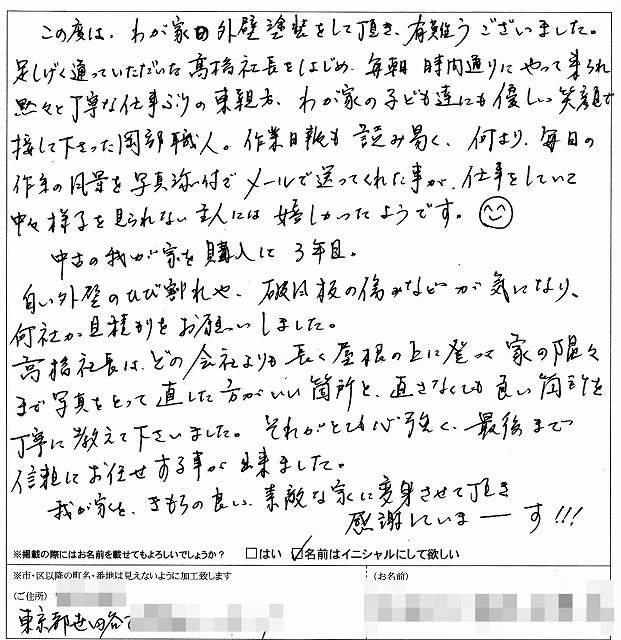 この度は、わが家の外壁塗装をして頂き、有難うございました。
足しげく通っていただいた高橋社長をはじめ、毎朝 時間通りにやって来られ
黙々と丁寧な仕事ぶりの東親方、わが家の子ども達にも優しい笑顔で
接して下さった岡部職人。作業日報も読み易く、何より、毎日の
作業の風景を写真添付でメールで送ってくれた事が、仕事をしていて
中々様子を見られない主人には嬉しかったようです。
中古の我が家を購入して3年目。
白い外壁のひび割れや、破風板の傷みなどが気になり、
何社か見積りをお願いしました。
高橋社長は、どの会社よりも長く屋根の上に登って家の隅々
まで写真をとって直した方がいい箇所と、直さなくても良い箇所を
丁寧に教えて下さいました。それがとても心強く、最後まで
信頼してお任せする事が出来ました。
我が家を、きもちの良い、素敵な家に変身させて頂き
感謝していまーす!!!
※掲載の際にはお名前を載せてもよろしいでしょうか? □はい ☑名前はイニシャルにして欲しい
※市・区以降の町名・番地は見えないように加工致します
(ご住所) (お名前)
東京都世田谷